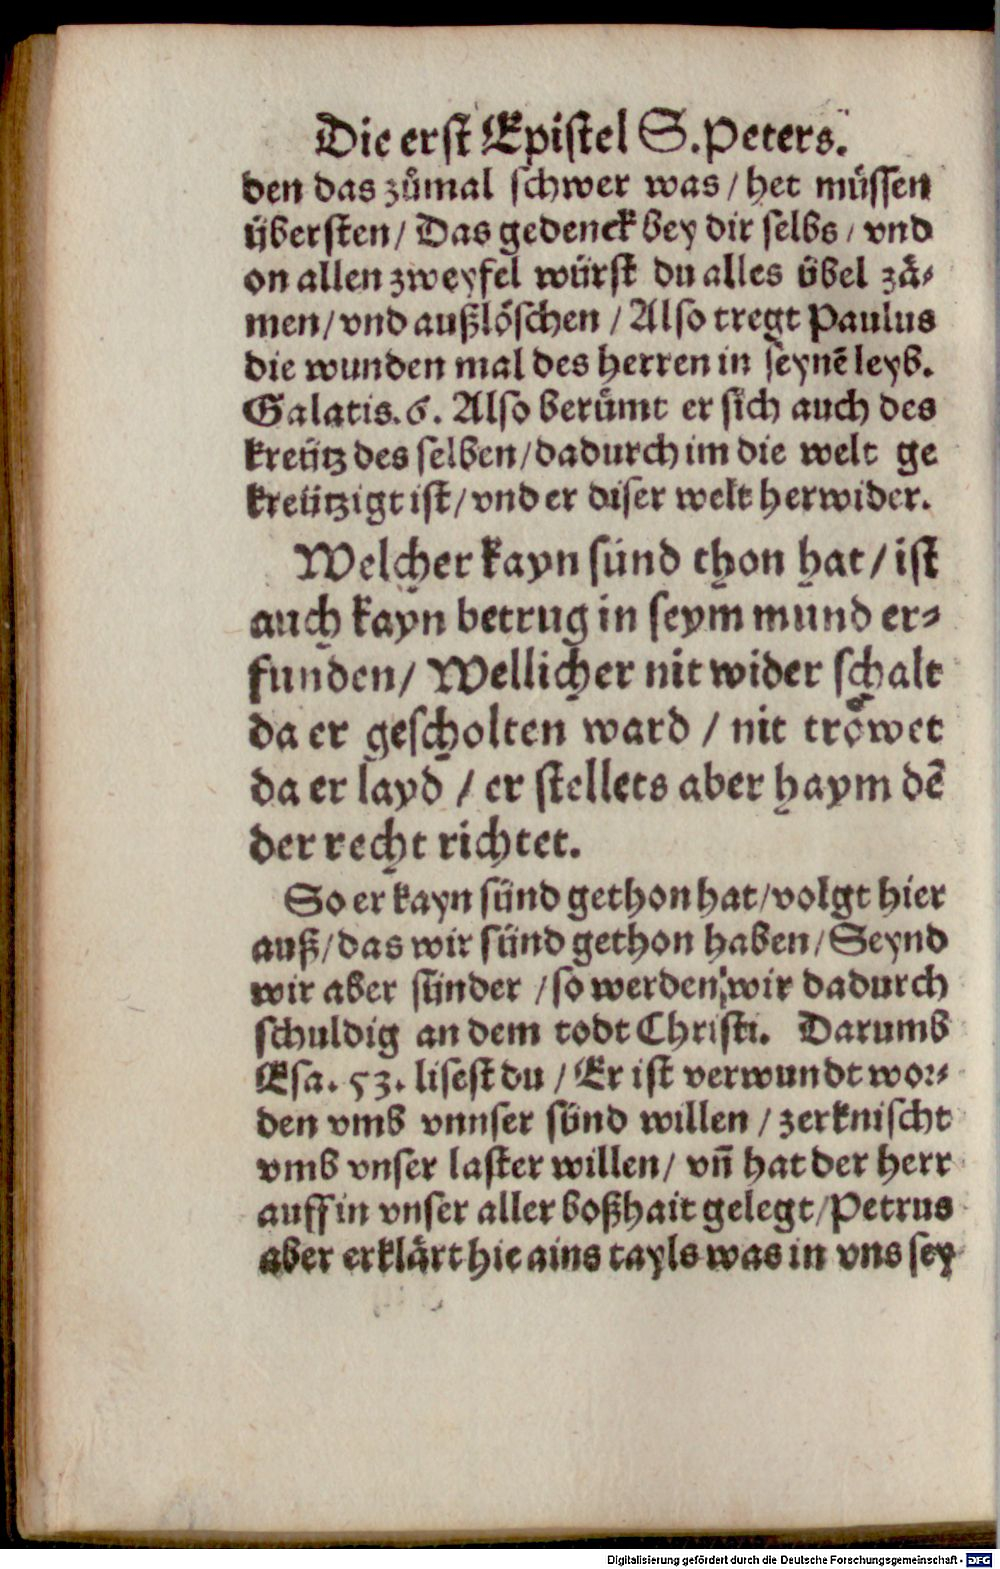 Die erst Epistel S. Peters.
den das zůmal schwer was / het müssen
übersten / Das gedenck bey dir selbs / vnd
on allen zweyfel würst du alles übel zä-
men / vnd außlöschen / Also tregt Paulus
die wunden mal des herren in seynē leyb.
Galatis. 6. Also berůmt er sich auch des
kreütz des selben / dadurch im die welt ge
kreützigt ist / vnd er diser welt herwider.
Welcher kayn sünd thon hat / ist
auch kayn betrug in seym mund er-
funden / Wellicher nit wider schalt
da er gescholten ward / nit trowet
da er layd / er stellets aber haym dē
der recht richtet.
So er kayn sünd gethon hat / volgt hier
auß / das wir sünd gethon haben / Seynd
wir aber sünder / so werden wir dadurch
schuldig an dem todt Christi. Darumb
Esa. 53. lisest du / Er ist verwundt wor-
den vmb vnnser sünd willen / zerknischt
vmb vnser laster willen / vñ hat der herr
auff in vnser aller boßhait gelegt / Petrus
aber erklärt hie ains tayls was in vns sey
Digitalisierung gefördert durch die Deutsche Forschungsgemeinschaft - DFG